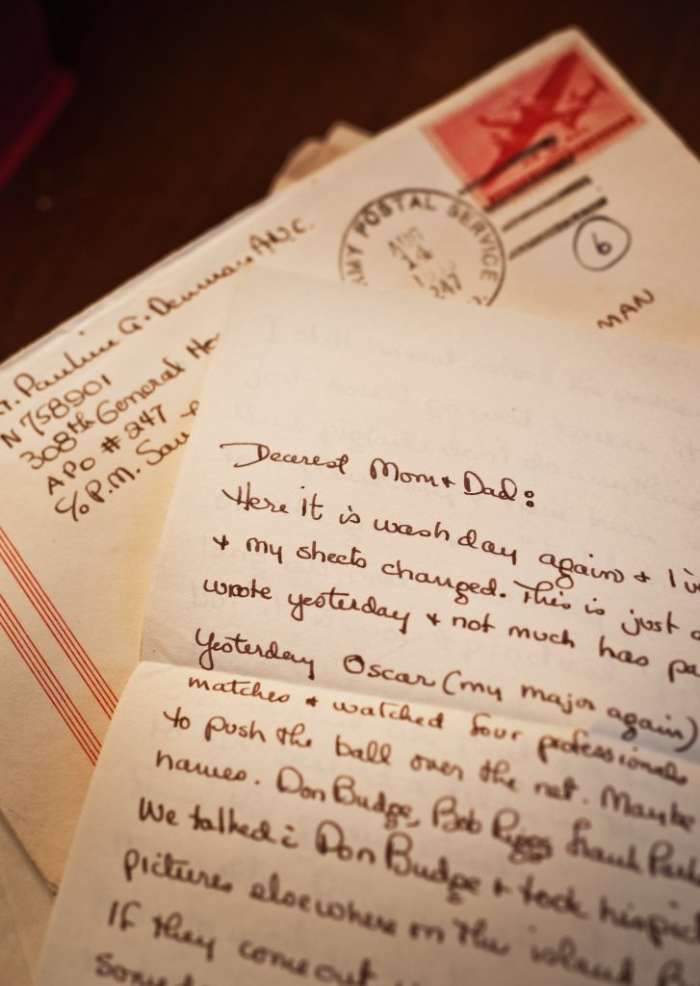 ARMY POSTAL SERVICE
AUG
247
6
MAN
Pauline G. A.N.C.
N 758901
308th General
APO # 247
c/o P.M. San
Dearest Mom + Dad:
Here it is wash day again + I've
+ my sheets changed. This is just a
wrote yesterday + not much has pa
Yesterday Oscar (my major again)
matches + watched four professionals
to push the ball over the net. Maybe
names. Don Budge, Bob Riggs Frank
We talked c̄ Don Budge + took his pict
pictures elsewhere on the island
If they come out